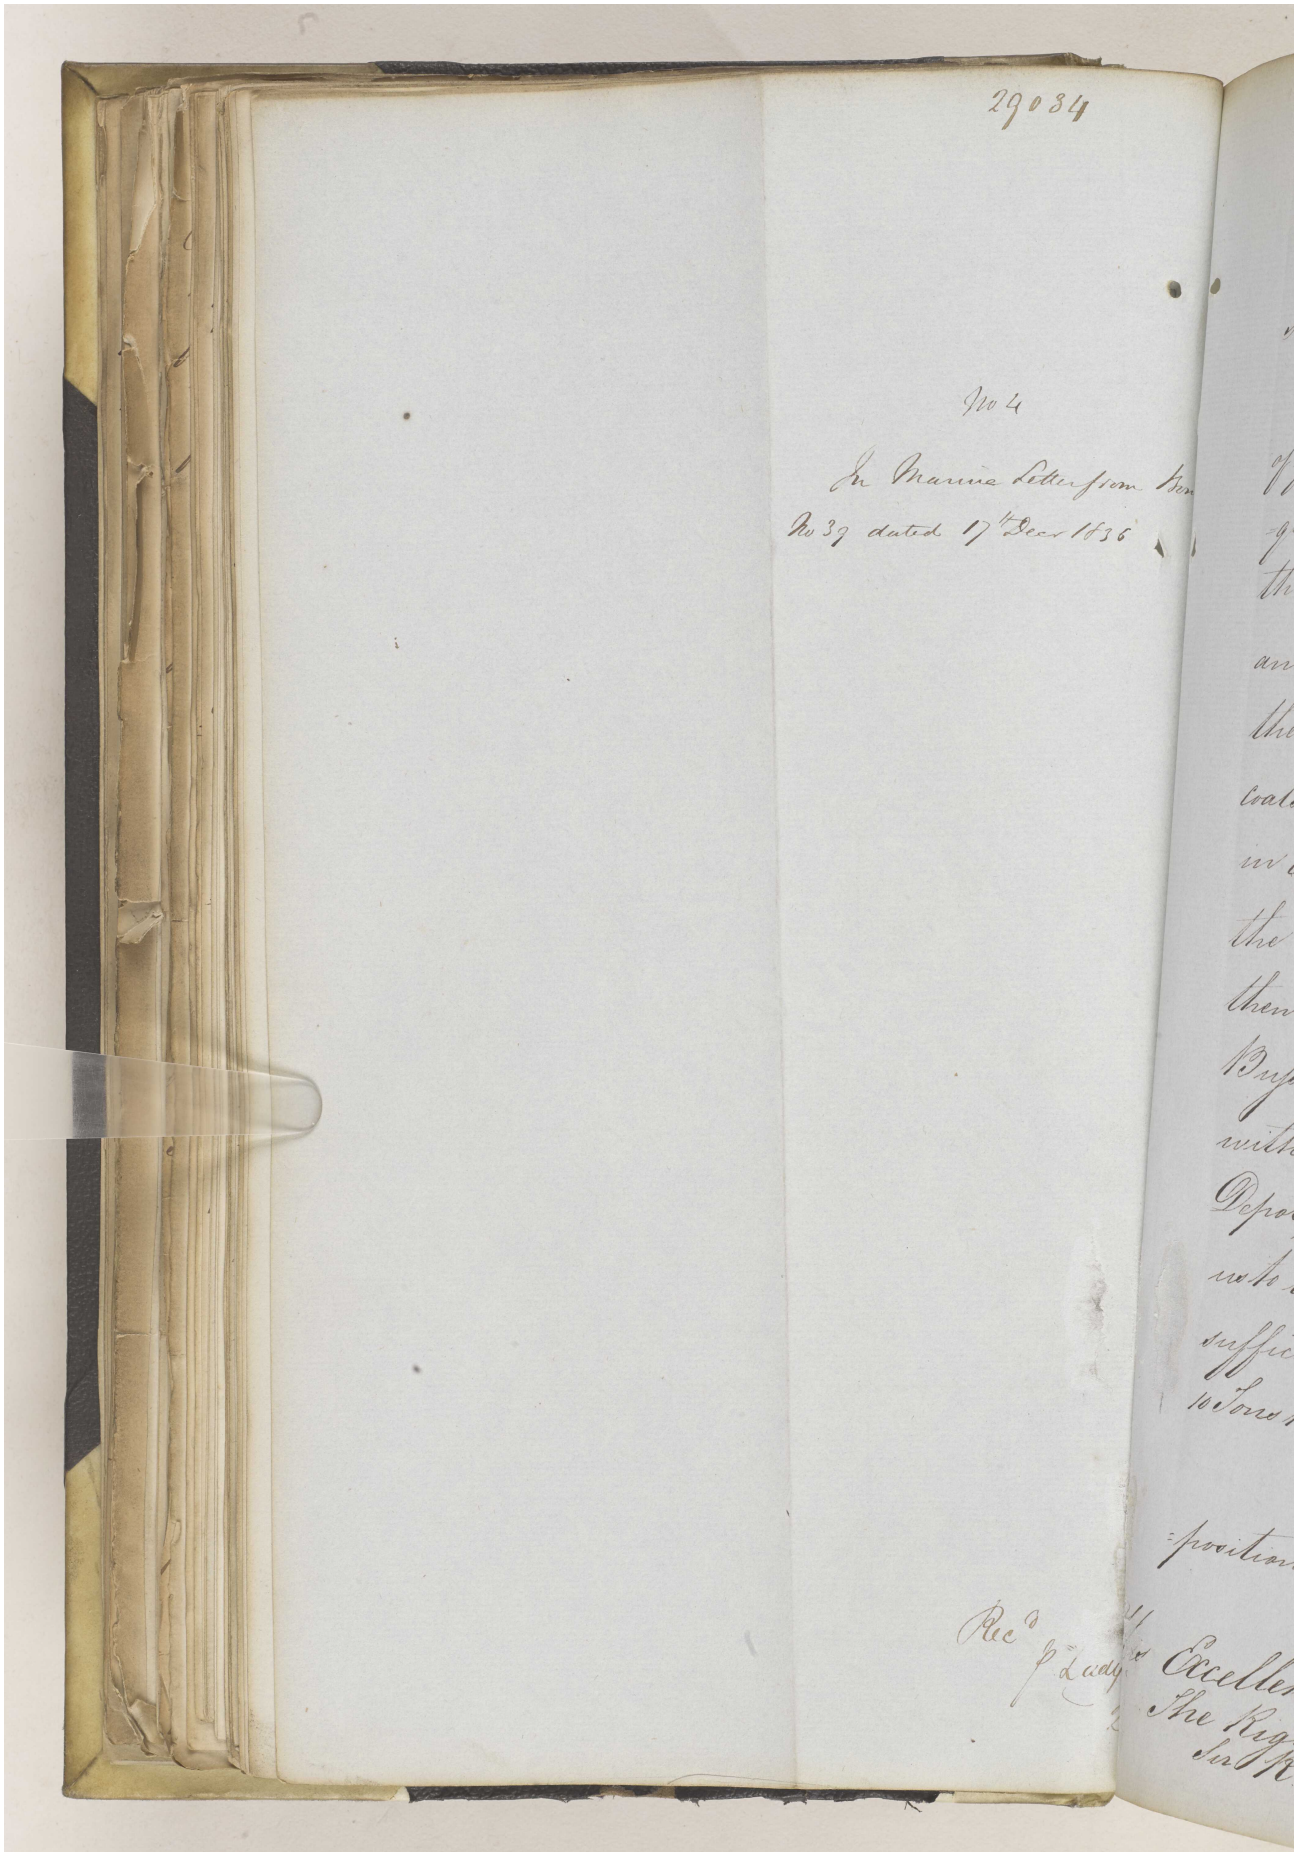 29034
No 4
In Marine Letter from Bom
No 39 dated 17th Decr 1836
Recd
P Lady
of
th
an
the
coals
in
the
then
with
Depot
us to
suffic
10 Tons
=position
Excellen
The Rig
Sir R